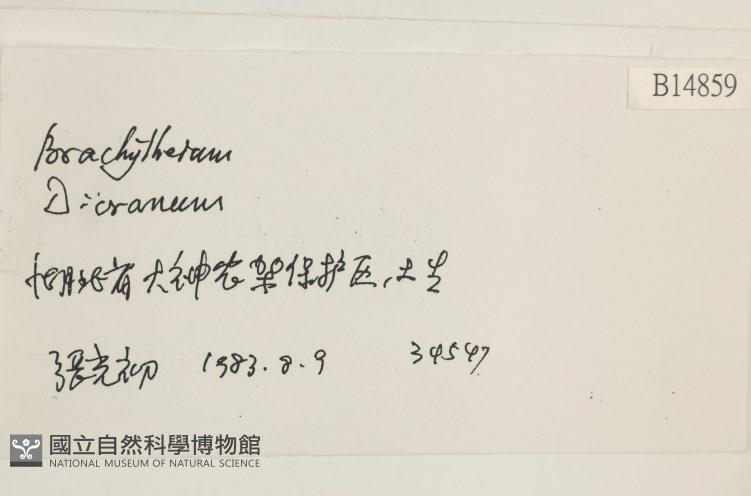 B14859
Brachytherum
Dicraneum
湖北省大神农架保护区，土生
張光初 1983.8.9 34547
國立自然科學博物館
NATIONAL MUSEUM OF NATURAL SCIENCE